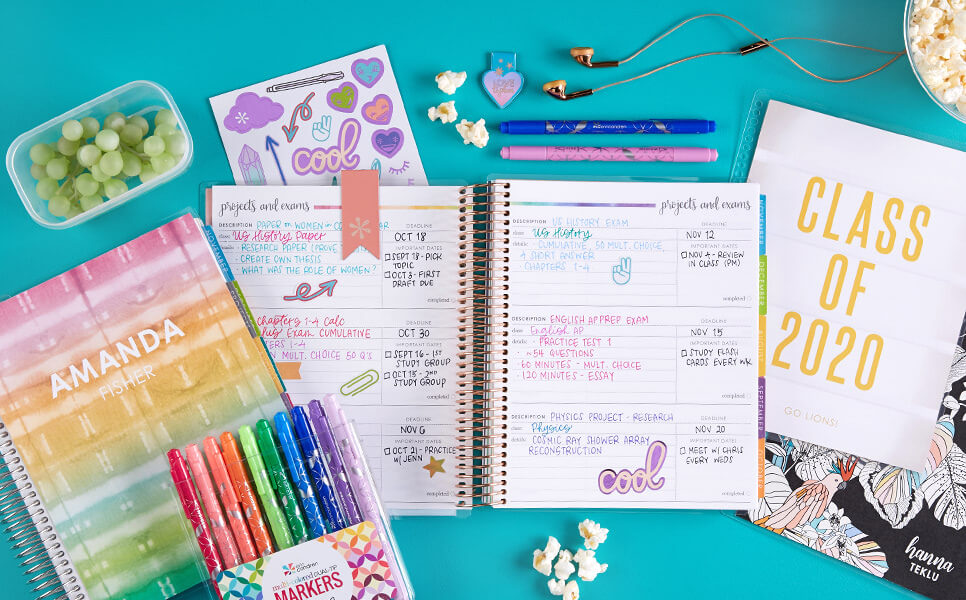 cool
projects and exams
DESCRIPTION PAPER on WOMEN in
class US History Paper
details · RESEARCH PAPER (PROVE
· CREATE OWN THESIS
· WHAT WAS THE ROLE OF WOMEN?
DEADLINE
OCT 18
IMPORTANT DATES
SEPT 18 - PICK
TOPIC
OCT 3 - FIRST
DRAFT DUE
completed
Chapters 1-4 Calc
Exam CUMULATIVE
1-4
MULT. CHOICE 50 Q'S
DEADLINE
OCT 30
IMPORTANT DATES
SEPT 16 - 1ST
STUDY GROUP
OCT 15 - 2ND
STUDY GROUP
completed
DEADLINE
NOV 6
IMPORTANT DATES
OCT 21 - PRACTICE
W/ JENN
completed
projects and exams
DESCRIPTION US HISTORY EXAM
class US History
details · CUMULATIVE, 50 MULT. CHOICE,
4 SHORT ANSWER
· CHAPTERS 1-4
DEADLINE
NOV 12
IMPORTANT DATES
NOV 4 - REVIEW
IN CLASS (PM)
completed
DESCRIPTION ENGLISH AP PREP EXAM
class English AP
details · PRACTICE TEST 1
· ~54 QUESTIONS
· 60 MINUTES - MULT. CHOICE
· 120 MINUTES - ESSAY
DEADLINE
NOV 15
IMPORTANT DATES
STUDY FLASH
CARDS EVERY WK
completed
DESCRIPTION PHYSICS PROJECT - RESEARCH
class Physics
details COSMIC RAY SHOWER ARRAY
RECONSTRUCTION
cool
DEADLINE
NOV 20
IMPORTANT DATES
MEET W/ CHRIS
EVERY WEDS
completed
NOVEMBER
DECEMBER
AUGUST
SEPTEMBER
AMANDA
FISHER
NOVEMBER
erin condren
multi-colored DUAL-TIP
MARKERS
CLASS
OF
2020
GO LIONS!
hanna
TEKLU